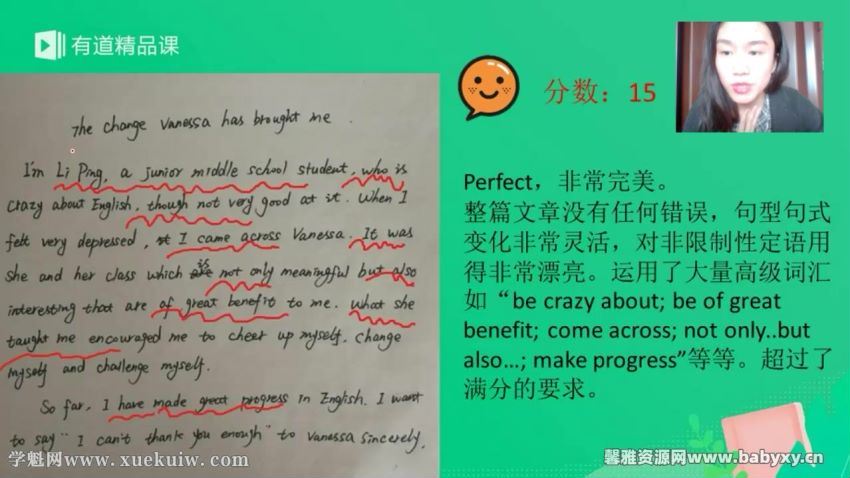 有道精品课
分数：15
The change Vanessa has brought me.
I'm Li Ping, a junior middle school student, who is
crazy about English, though not very good at it. When I
felt very depressed, I came across Vanessa. It was
she and her class which is not only meaningful but also
interesting that are of great benefit to me. What she
taught me encouraged me to cheer up myself, change
myself and challenge myself.
So far, I have made great progress in English. I want
to say "I can't thank you enough" to Vanessa sincerely.
Perfect，非常完美。
整篇文章没有任何错误，句型句式
变化非常灵活，对非限制性定语用
得非常漂亮。运用了大量高级词汇
如“be crazy about; be of great
benefit; come across; not only..but
also…; make progress”等等。超过了
满分的要求。
学魁网www.xuekuiw.com
馨雅资源网www.babyxy.cn